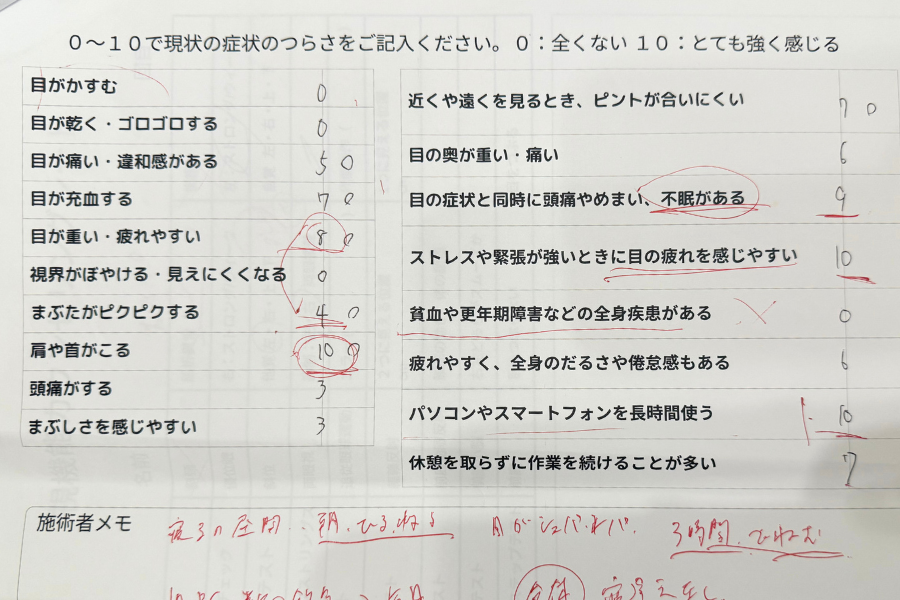 0〜10で現状の症状のつらさをご記入ください。0：全くない 10：とても強く感じる
目がかすむ 0
目が乾く・ゴロゴロする 0
目が痛い・違和感がある 5 0
目が充血する 7 0
目が重い・疲れやすい 8 0
視界がぼやける・見えにくくなる 0
まぶたがピクピクする 4 0
肩や首がこる 10 0
頭痛がする 3
まぶしさを感じやすい 3
近くや遠くを見るとき、ピントが合いにくい 7 0
目の奥が重い・痛い 6
目の症状と同時に頭痛やめまい、不眠がある 9
ストレスや緊張が強いときに目の疲れを感じやすい 10
貧血や更年期障害などの全身疾患がある 0
疲れやすく、全身のだるさや倦怠感もある 6
パソコンやスマートフォンを長時間使う 10
休憩を取らずに作業を続けることが多い 7
施術者メモ
朝・ひる、ねる 目がシュパシュパ 3時間